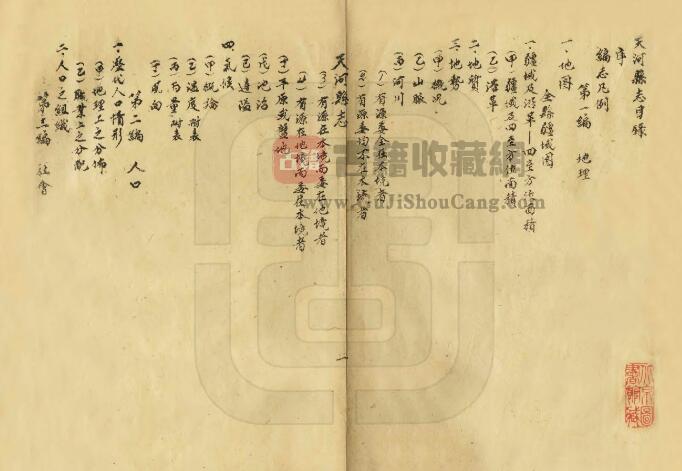 天河縣志目錄
序
編志凡例
第一編 地理
一、地圖
全縣疆域圖
一、疆域及沿革—四至方位面積
(甲)疆域及四至方位面積
(乙)沿革
二、地質
三、地勢
(甲)概况
(乙)山脈
(丙)河川
(1)有源委全在本境者
(2)有源委均不在本境者
天河縣志
一
(3)有源在本境而委在他境者
(4)有源在他境而委在本境者
(丁)平原或盤地
(戊)池沼
(己)邊隘
四、氣候
(甲)概論
(乙)溫度附表
(丙)雨量附表
(丁)風向
第二編 人口
一、歷代人口情形
(甲)地理上之分佈
(乙)職業上之分配
二、人口之組織
第三編 社會
古籍收藏网
www.GuJiShouCang.com
古籍
北京圖書館藏